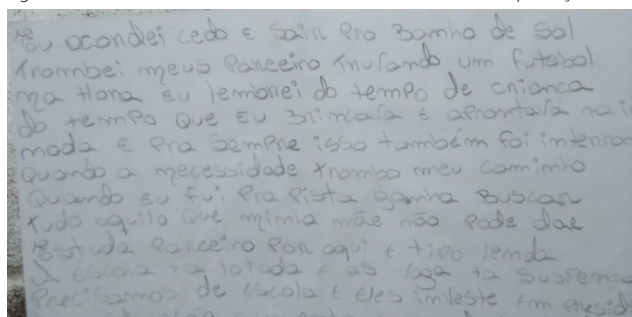 Eu acordei cedo e sain pro Bamho de Sol
Trombei meus Parceiro Trufando um futebol
ma Hora Eu lembrei do tempo de criamca
do tempo Que EU Brimcava E aprontava mais
moda E Pra Sempre isso também foi interron
Quando a mecessidade trombo meu camimho
Quando Eu fui Pra Pista ganha Buscar
tudo aquilo Que mimha mãe não Pode dar
Estuda Parceiro Por aqui é tipo lemda
A Escola ta lotada E as vaga ta Suspemca
Precisamos de Escola E Eles imveste Em Presid